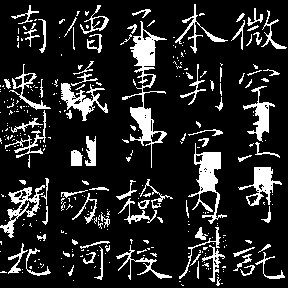 微空王可託
本判官內府
丞車沖檢校
僧義方河
南史華